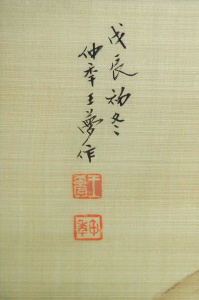 戊辰初冬
仲年王夢作